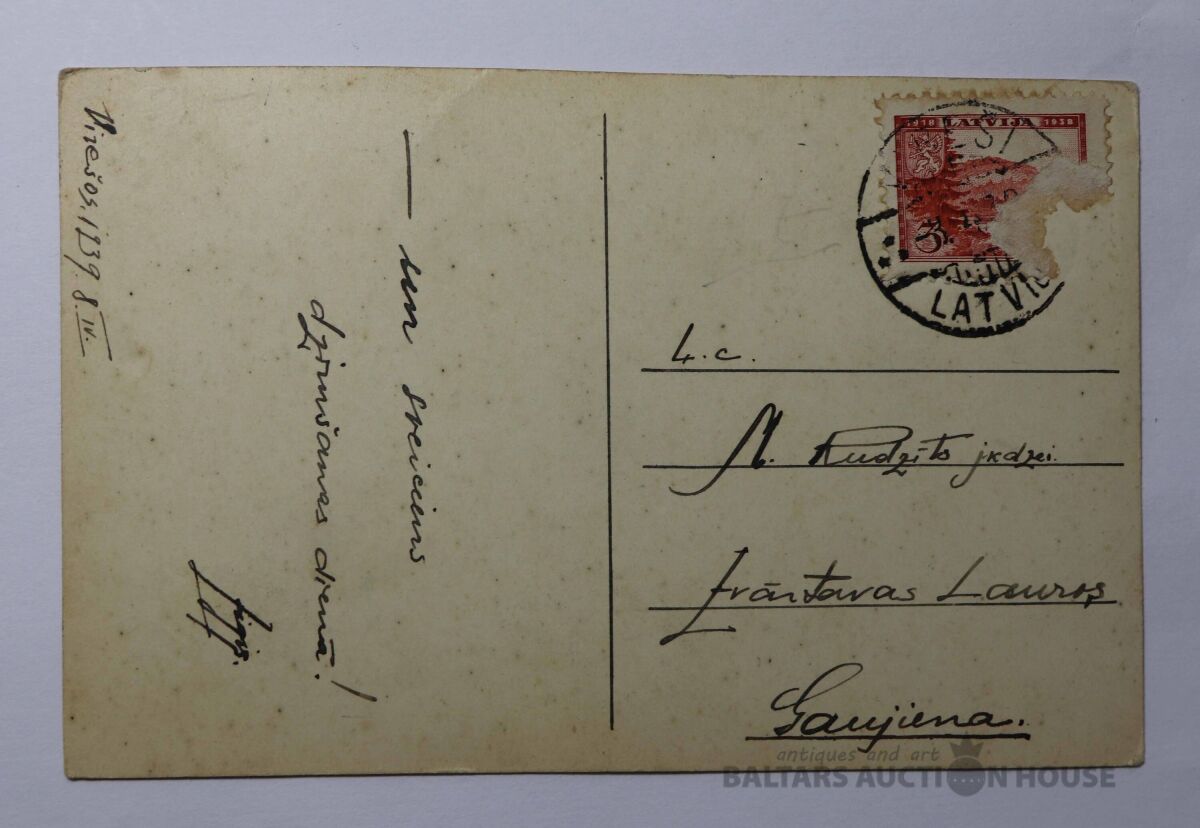 Virešos, 1939. 8. IV.
— un sveiciens
dzimšanas dienā!
1918 LATVIJA 1938
3
LATVIJ
L. c.
M. Rudzīts jkdzei.
Lauros
Gaujiena.
antiques and art
BALTARS AUCTION HOUSE